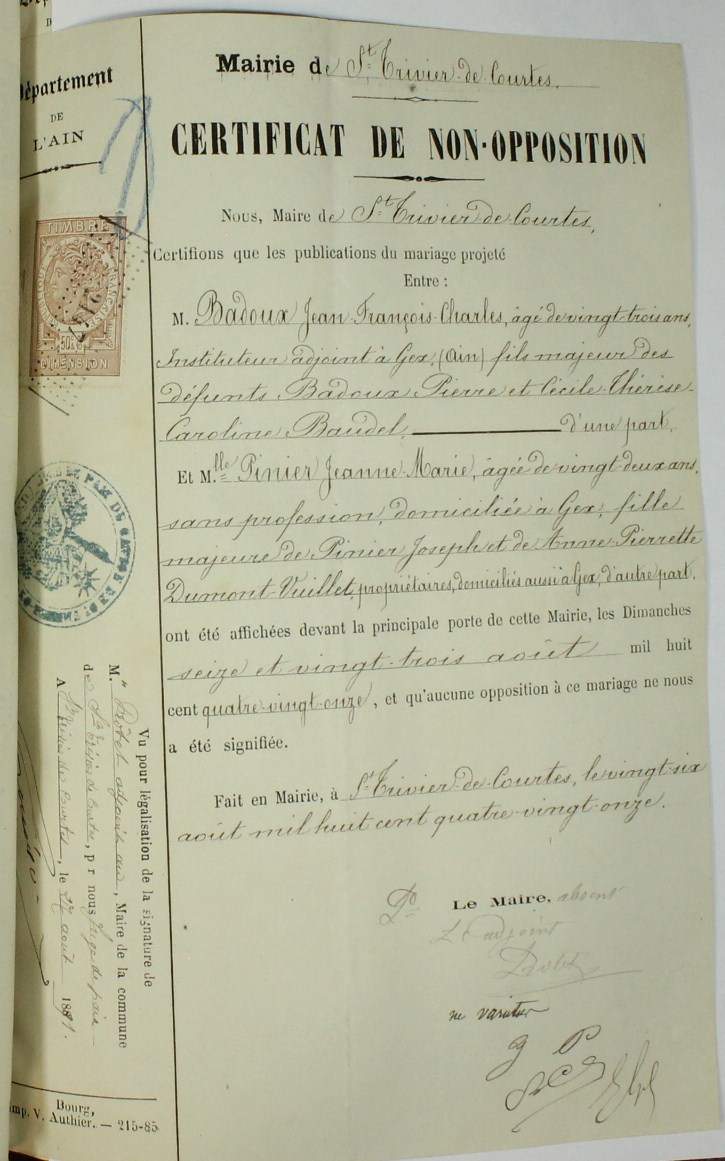 Département
DE
L'AIN
TIMBRE
DIMENSION
Mairie de St Trivier-de-Courtes.
CERTIFICAT DE NON-OPPOSITION
Nous, Maire de St Trivier de Courtes,
Certifions que les publications du mariage projeté
Entre :
M. Badoux Jean François-Charles, âgé de vingt-trois ans,
Instituteur adjoint à Gex, (Ain) fils majeur des
défunts Badoux Pierre et Cécile Thérèse-
Caroline Baudel, d'une part,
Et M.lle Pinier Jeanne-Marie, âgée de vingt-deux ans,
sans profession, domiciliée à Gex, fille
majeure de Pinier Joseph et de Anne Pierrette
Dumont-Vuillet, propriétaires, domiciliés aussi à Gex, d'autre part,
ont été affichées devant la principale porte de cette Mairie, les Dimanches
seize et vingt-trois août mil huit
cent quatre-vingt-onze, et qu'aucune opposition à ce mariage ne nous
a été signifiée.
Fait en Mairie, à St Trivier-de-Courtes, le vingt-six
août mil huit cent quatre-vingt-onze.
Le Maire, absent
L'adjoint
ne varietur
Vu pour légalisation de la signature de
M. adjoint au, Maire de la commune
de St Trivier de Courtes, pr nous Juge de paix
A St Trivier de Courtes, le 27 août 1891.
Bourg,
Imp. V. Authier. — 215-85